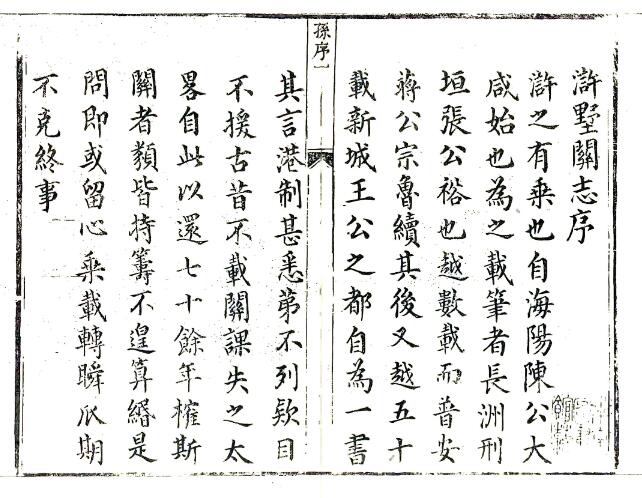 滸墅關志序
滸之有乘也自海陽陳公大
咸始也為之載筆者長洲刑
垣張公裕也越數載而普安
蔣公宗魯續其後又越五十
載新城王公之都自為一書
孫序一
其言港制甚悉第不列欵目
不援古昔不載關課失之太
畧自此以還七十餘年榷斯
關者類皆持籌不遑算緡是
問即或留心乘載轉瞬瓜期
不克終事